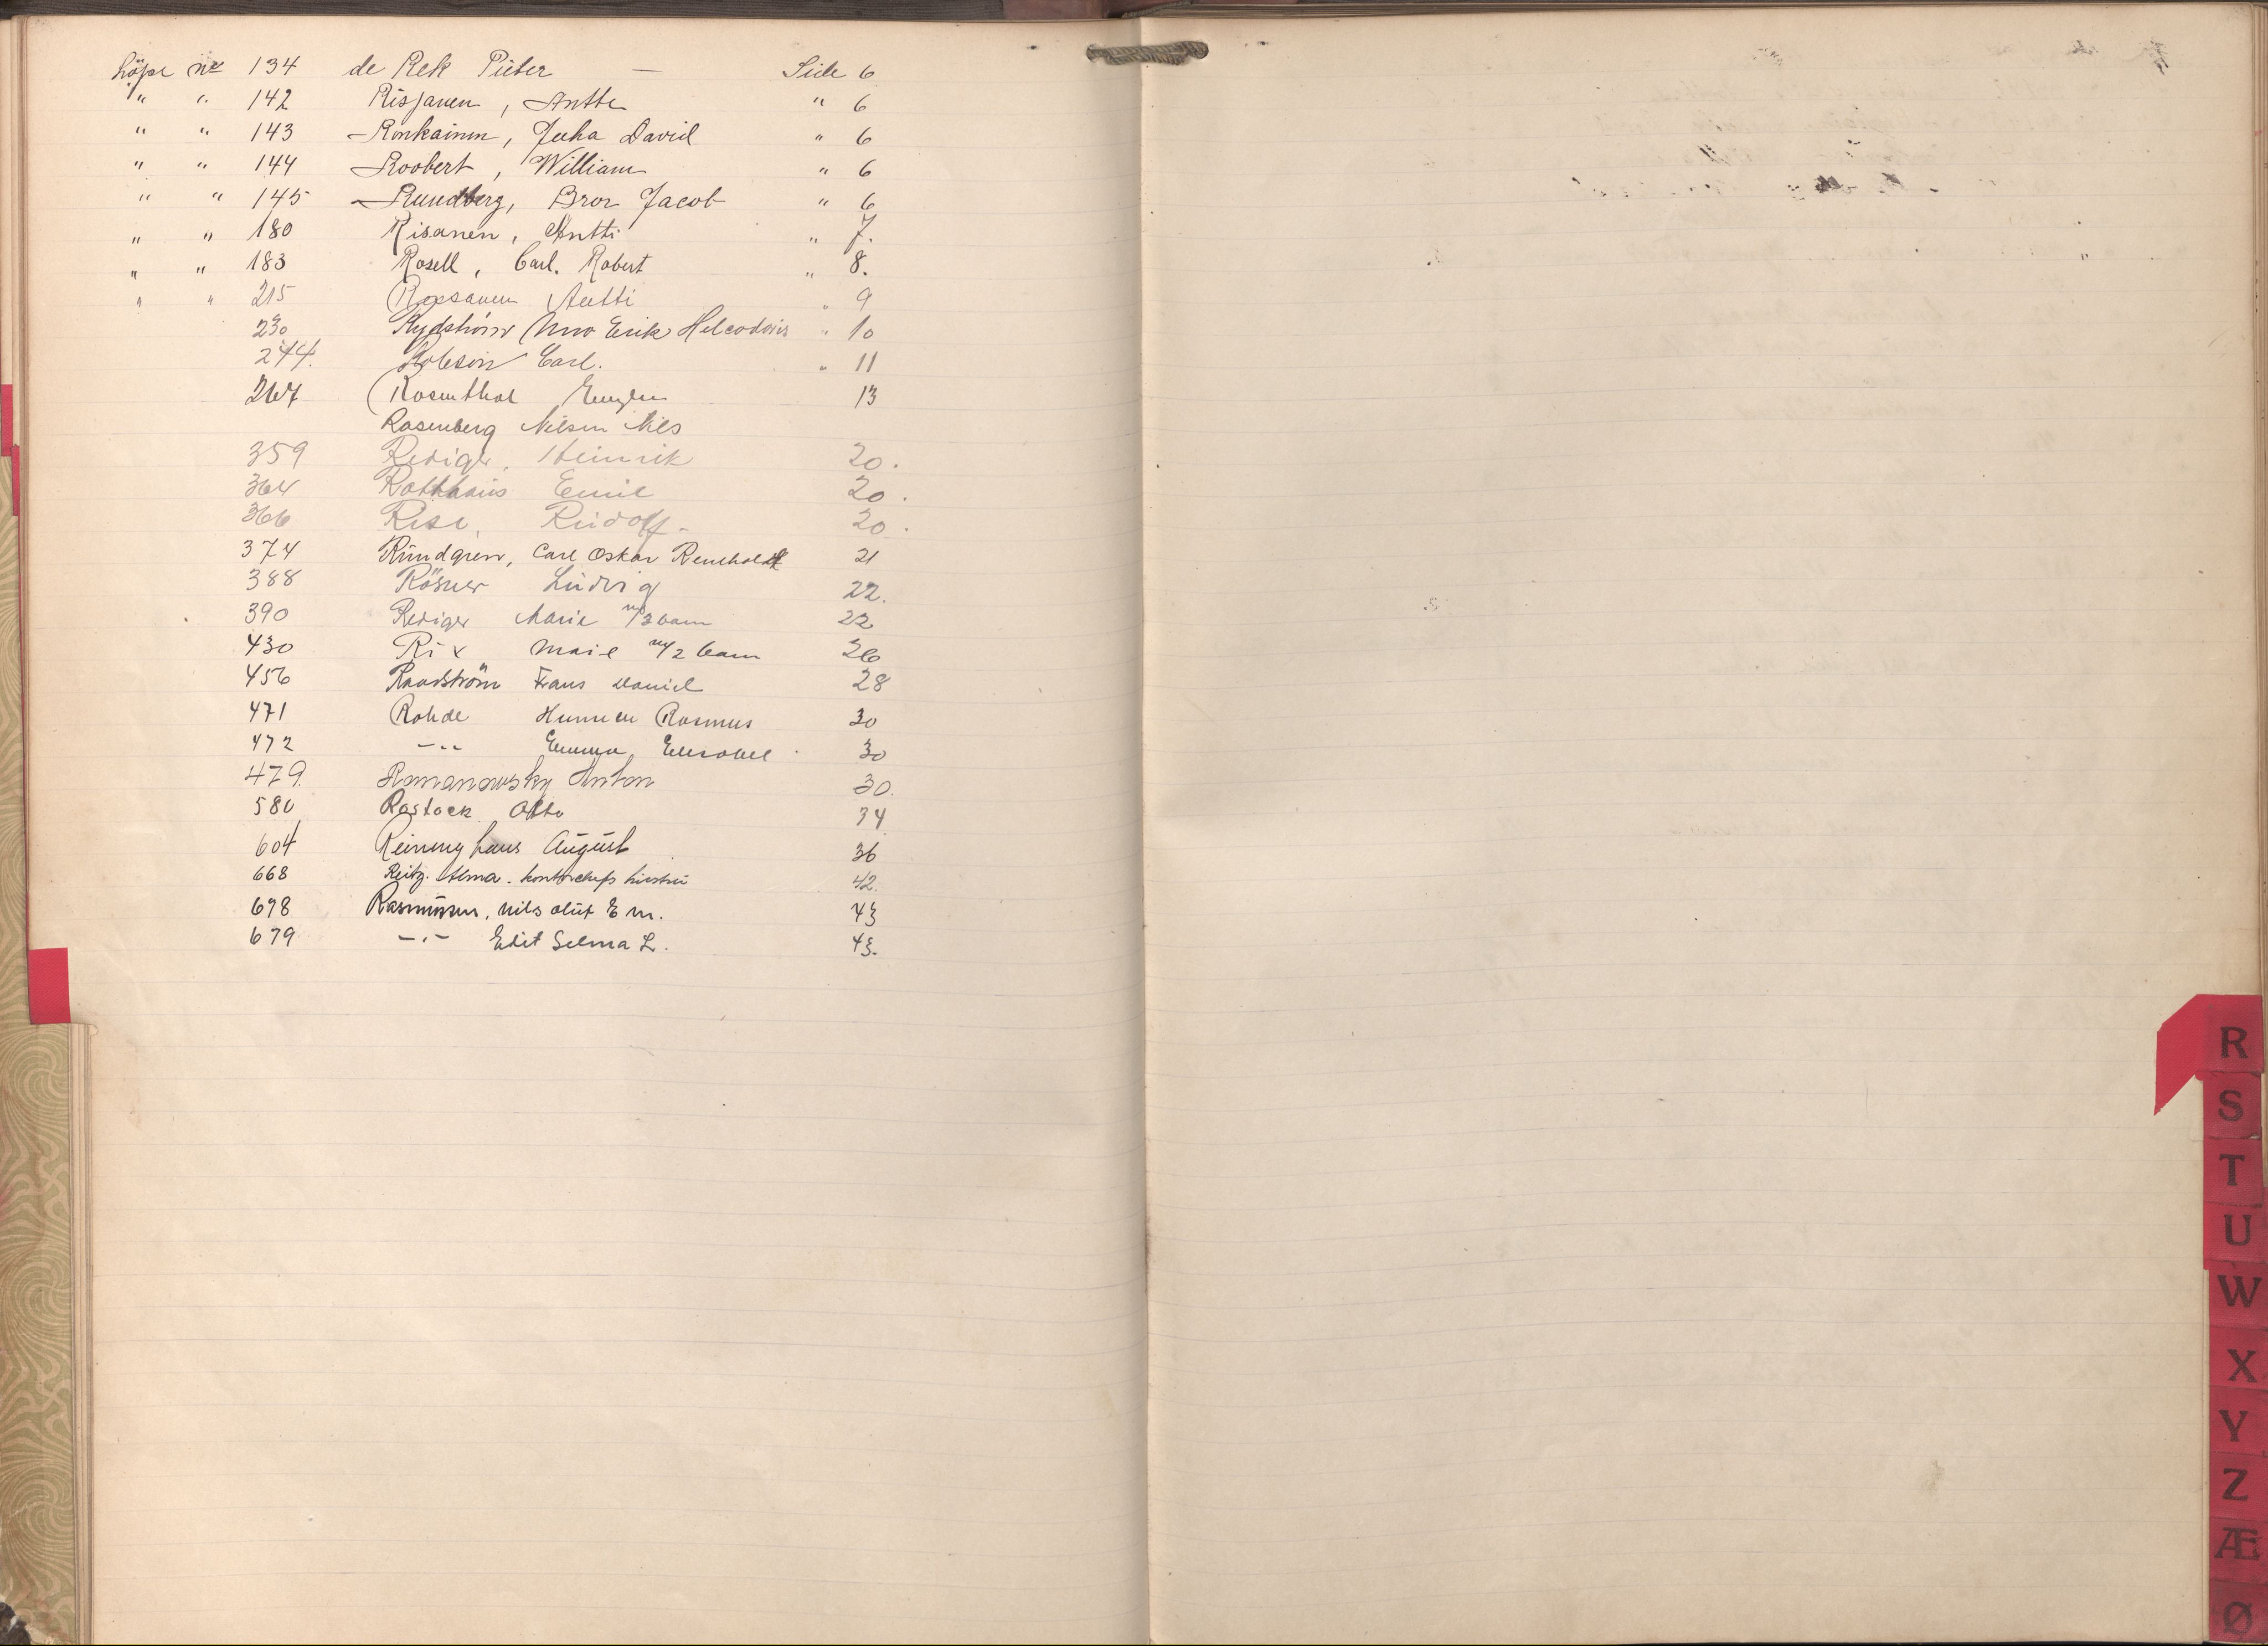 Löpe nr 134 de Rek Pieter — Side 6
" " 142 Risjanen, Antte " 6
" " 143 Ronkainen, Juha David " 6
" " 144 Roobert, William " 6
" " 145 Rundberg, Bror Jacob " 6
" " 180 Risanen, Antti " 7.
" " 183 Rosell, Carl. Robert " 8.
" " 215 Antti " 9
230 Rydström Uno Erik " 10
244. Carl. " 11
267 Rosenthal 13
Rosenberg Nilsen Nils
359 Rediger, Heinrik 20.
364 Rotthaus Emil 20.
366 Rese, Rudolf. 20.
374 Rundgren, Carl Oskar 21
388 Rösner Ludvig 22.
390 Rediger Marie m/3 barn 22
430 Rix m/2 barn 26
456 Raadström Frans Daniel 28
471 Rohde Rasmus 30
472 -"- Emma 30
479. Romanowsky Anton 30.
580 Rostock Otto 34
604 Reininghaus August 36
668 Reitz. Alma. kontorchefs hustru 42.
678 Rasmussen, Nils Olut E m. 43
679 -"- Edit Selma L. 43.
R
S
T
U
W
X
Y
Z
Æ
Ø